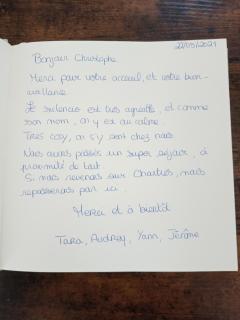 22/05/2021
Bonjour Christophe
Merci pour votre accueil, et votre bien-
veillance.
Le silencio est très agréable, et comme
son nom, on y est au calme.
Très cosy, on s'y sent chez nous.
Nous avons passés un super séjour, à
proximité de tout.
Si nous revenons sur Chartres, nous
repasserons par ici.
Merci et à bientôt
Tara, Audrey, Yann, Jérôme